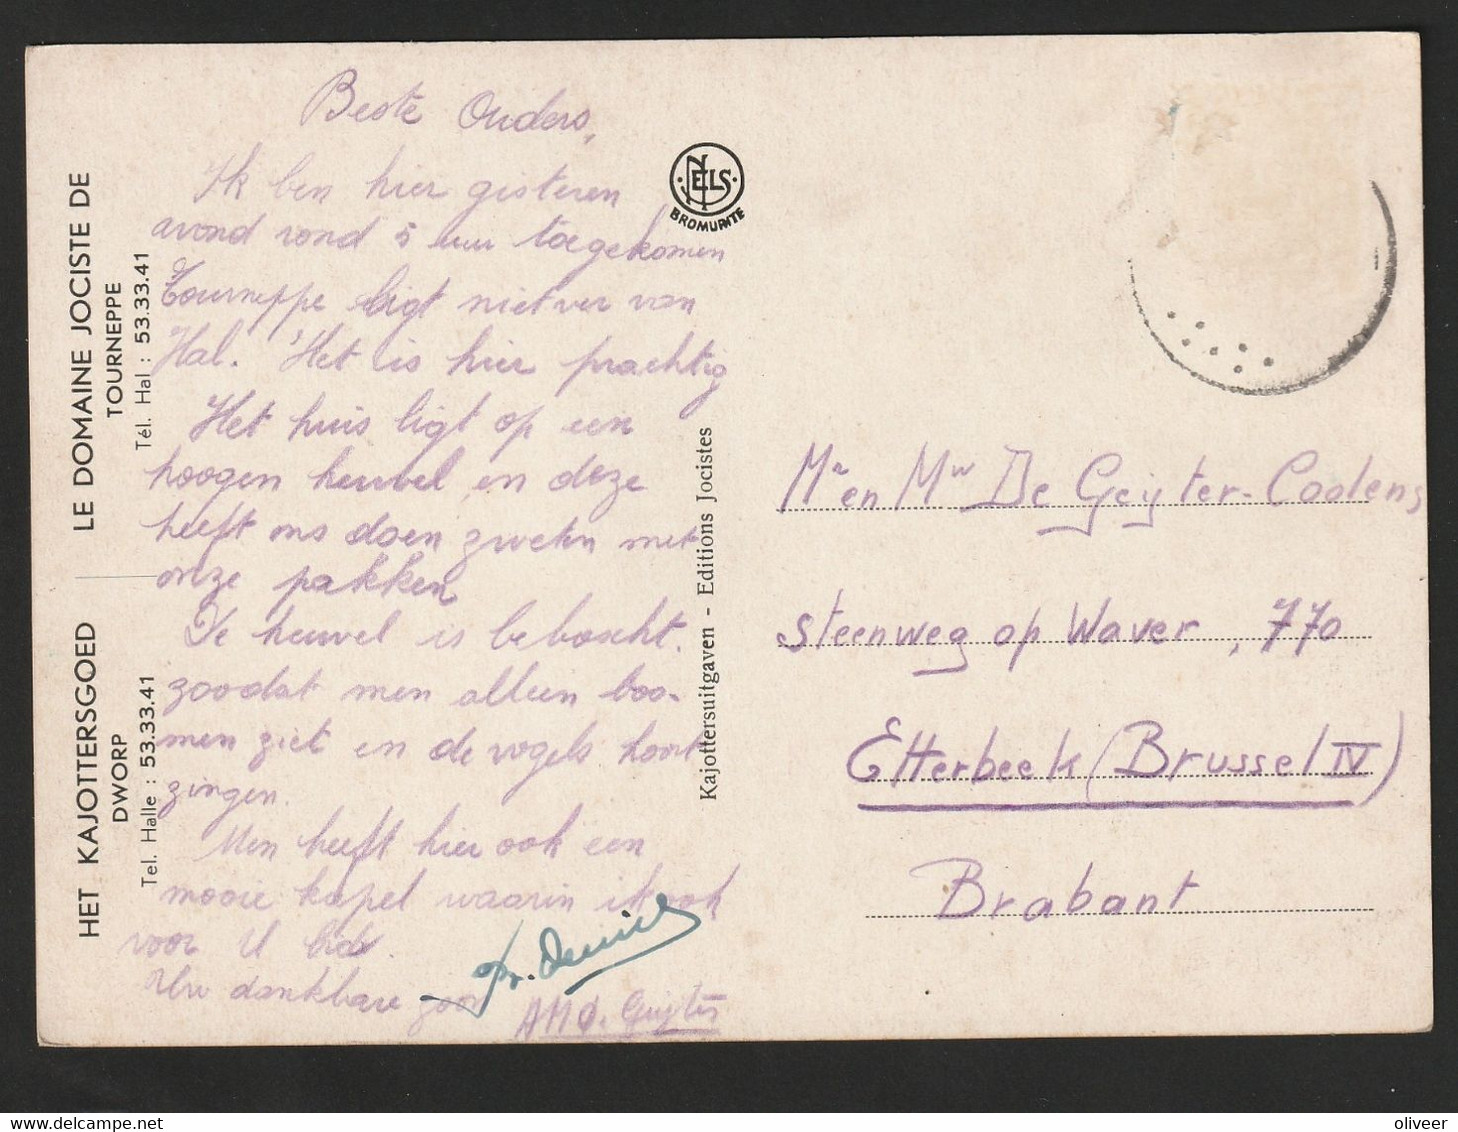 LE DOMAINE JOCISTE DE
TOURNEPPE
Tél. Hal : 53.33.41
HET KAJOTTERSGOED
DWORP
Tel. Halle : 53.33.41
Beste Ouders,
Ik ben hier gisteren
avond rond 5 uur toegekomen
Tourneppe ligt niet ver van
Hal. Het is hier prachtig
Het huis ligt op een
hoogen heuvel en deze
heeft ons doen zweten met
onze pakken
De heuvel is beboscht.
zoodat men alleen boo-
men ziet en de vogels hoort
zingen.
Men heeft hier ook een
mooie kapel waarin ik ook
voor U bid.
Uw dankbare zoon
NELS
BROMURITE
Kajottersuitgaven - Editions Jocistes
Mr en Mw De Geyter-Coolens
Steenweg op Waver, 770
Etterbeek (Brussel IV)
Brabant
oliveer